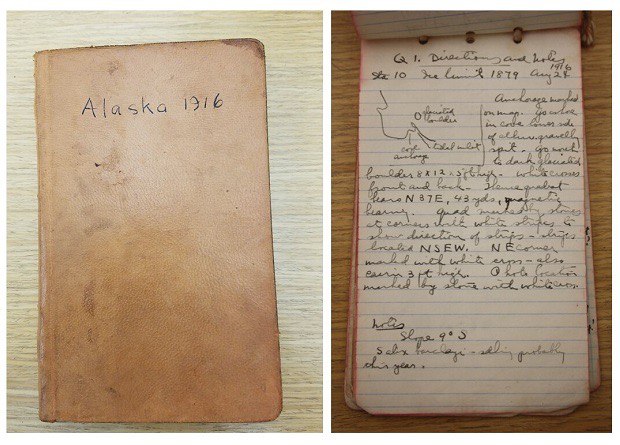 Alaska 1916
Q 1. Directions and Notes
Sta 10 Ice limit 1879 Aug 24
1916
glaciated
boulder
tidal inlet
cove
anchorage
Anchorage marked
on map. Go ashore
in cove lower side
of alluv. gravelly
spit. Go north
to dark glaciated
boulder 8 x 12 x 5 ft high. White crosses
front and back. Thence quadrat
bears N 37 E, 43 yds, magnetic
bearing. Quad marked by stones
at corners with white stripes to
show direction of strips - strips
located NSEW. NE corner
marked with white cross - also
cairn 3 ft high. Photo location
marked by stone with white cross.
Notes
Slope 9° S
Salix barclayi - sdling probably
this year.